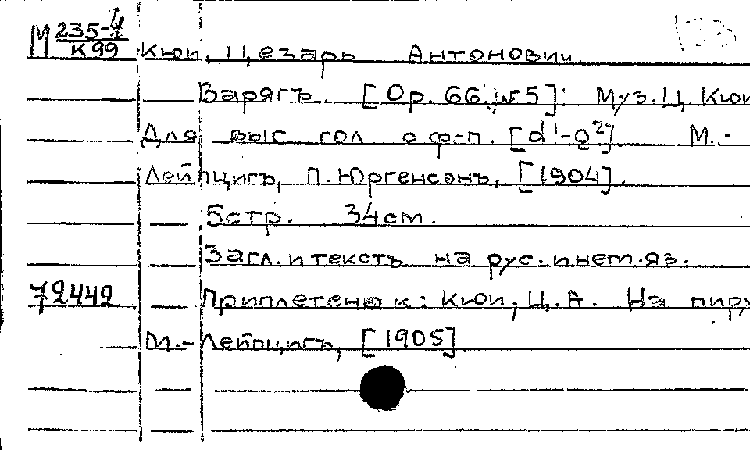 М 235-4 / К99 Кюи, Цезарь Антонович
Варягъ. [Op. 66. №5]: Муз. Ц. Кюи
Для выс. гол. с ф-п. [d¹-g²]. М.-
Лейпцигъ, П. Юргенсонъ, [1904].
5стр. 34см.
Загл. и текстъ на рус. и нем. яз.
72442 Приплетено к: Кюи, Ц. А. На пиру
М.-Лейпцигъ, [1905]